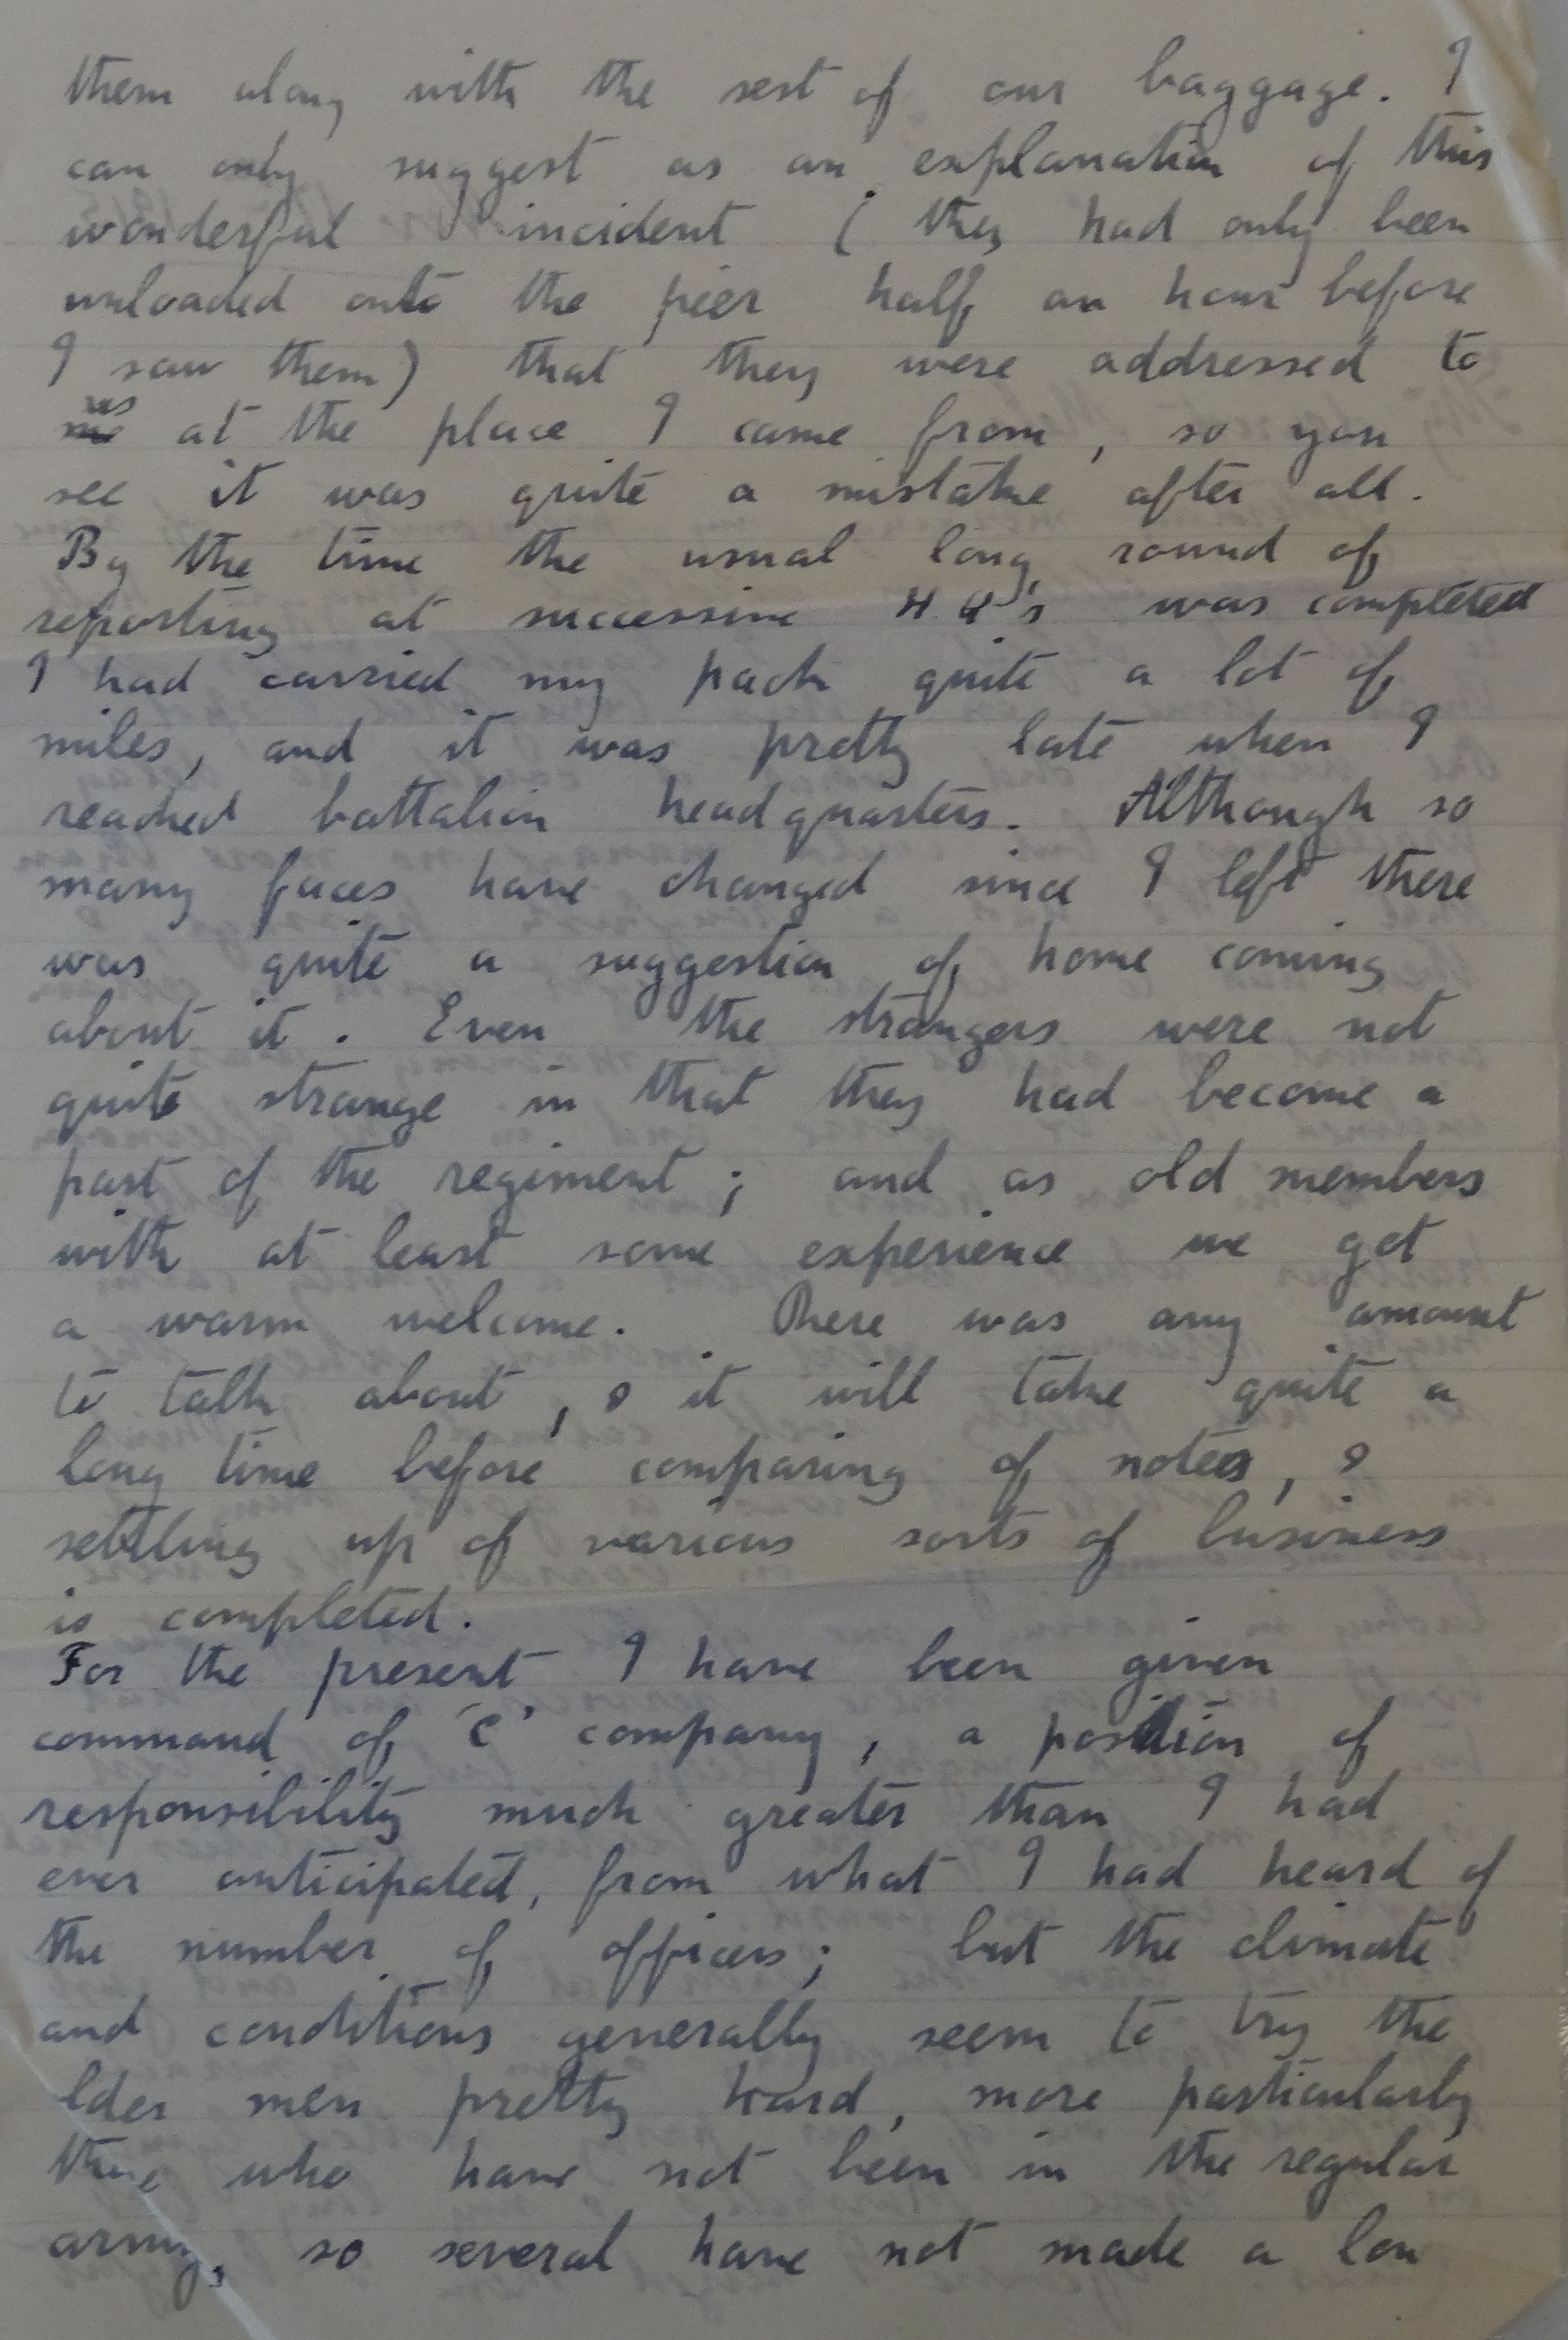 them along with the rest of our baggage. I
can only suggest as an explanation of this
wonderful incident ( they had only been
unloaded onto the pier half an hour before
I saw them) that they were addressed to
us
me at the place I came from, so you
see it was quite a mistake after all.
By the time the usual long round of
reporting at successive H.Q's was completed
I had carried my pack quite a lot of
miles, and it was pretty late when I
reached battalion headquarters. Although so
many faces have changed since I left there
was quite a suggestion of home coming
about it. Even the strangers were not
quite strange in that they had become a
part of the regiment; and as old members
with at least some experience we got
a warm welcome. There was any amount
to talk about, & it will take quite a
long time before comparing of notes, &
settling up of various sorts of business
is completed.
For the present I have been given
command of 'C' company, a position of
responsibility much greater than I had
ever anticipated, from what I had heard of
the number of officers; but the climate
and conditions generally seem to try the
lder men pretty hard, more particularly
those who have not been in the regular
army, so several have not made a lon